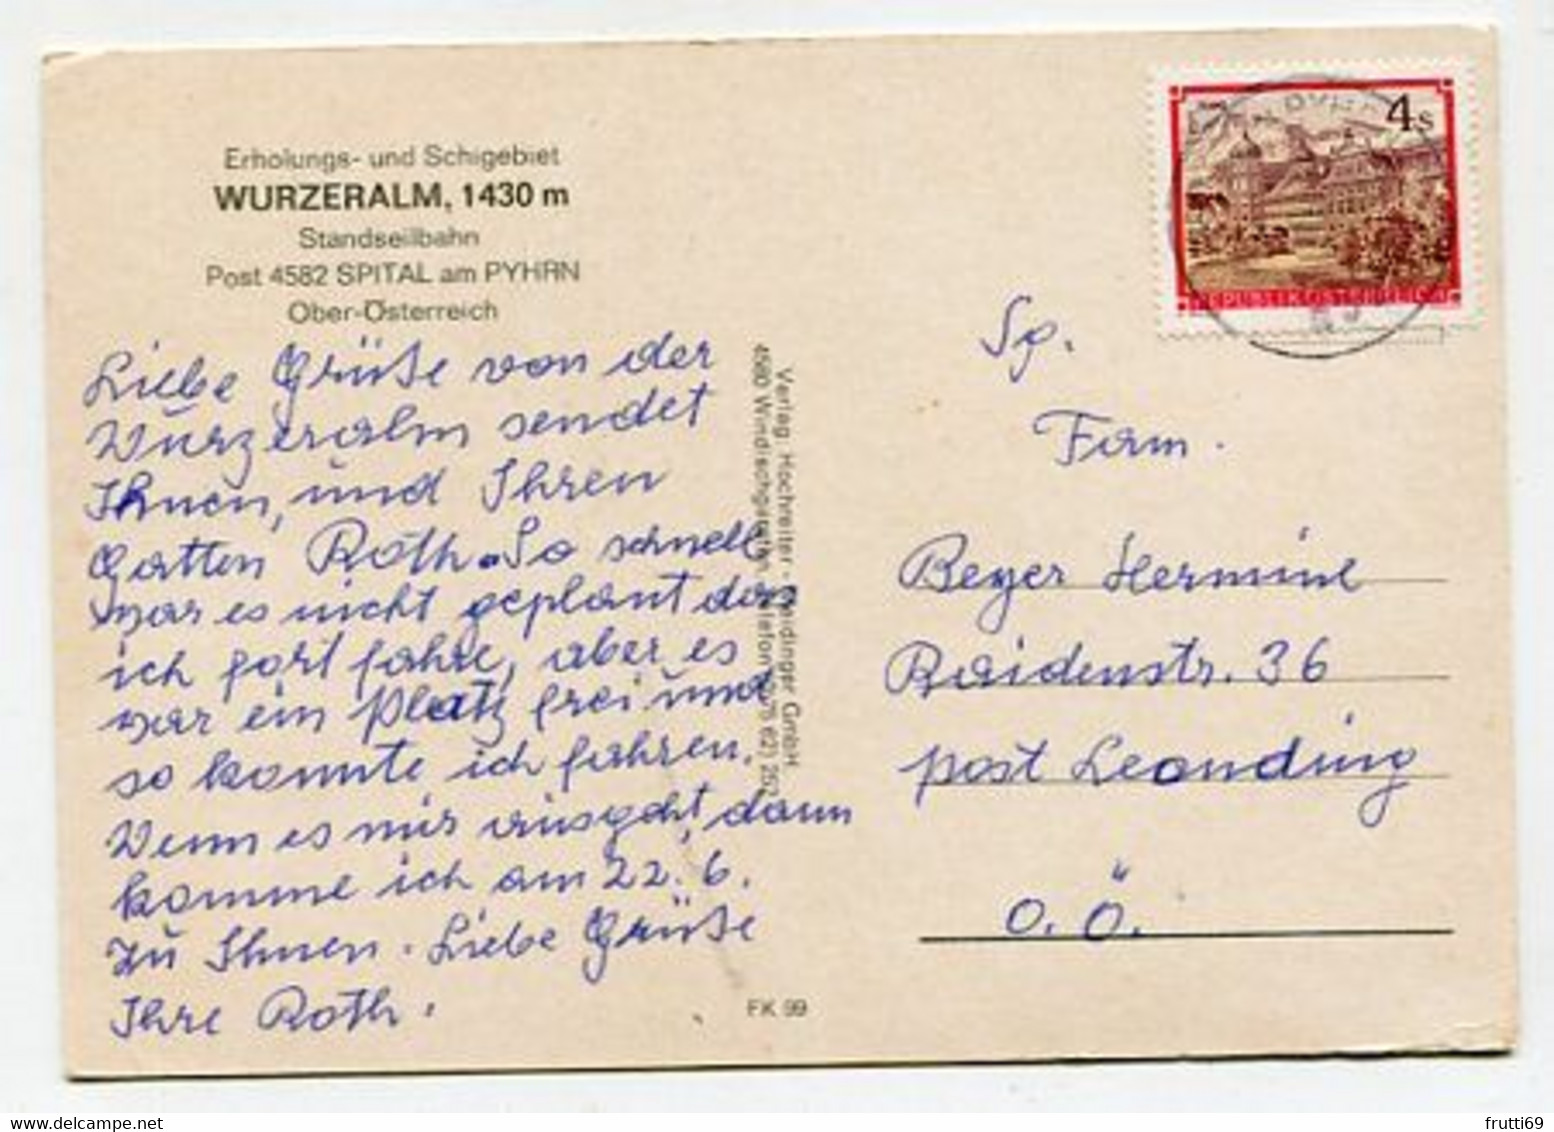 Erholungs- und Schigebiet
WURZERALM, 1430 m
Standseilbahn
Post 4582 SPITAL am PYHRN
Ober-Österreich
Liebe Grüße von der
Wurzeralm sendet
Ihnen, und Ihren
Gatten Roth. So schnell
war es nicht geplant das
ich fort fahre, aber es
war ein Platz frei und
so konnte ich fahren.
Wenn es mir ausgeht, dann
komme ich am 22. 6.
zu Ihnen. Liebe Grüße
Ihre Roth.
Verlag: Hochreiter
4580 Windischgarsten
GmbH,
FK 99
4 S
REPUBLIK ÖSTERREICH
Sg.
Fam.
Beyer Hermine
Raidenstr. 36
post Leonding
O. Ö.
frutti69